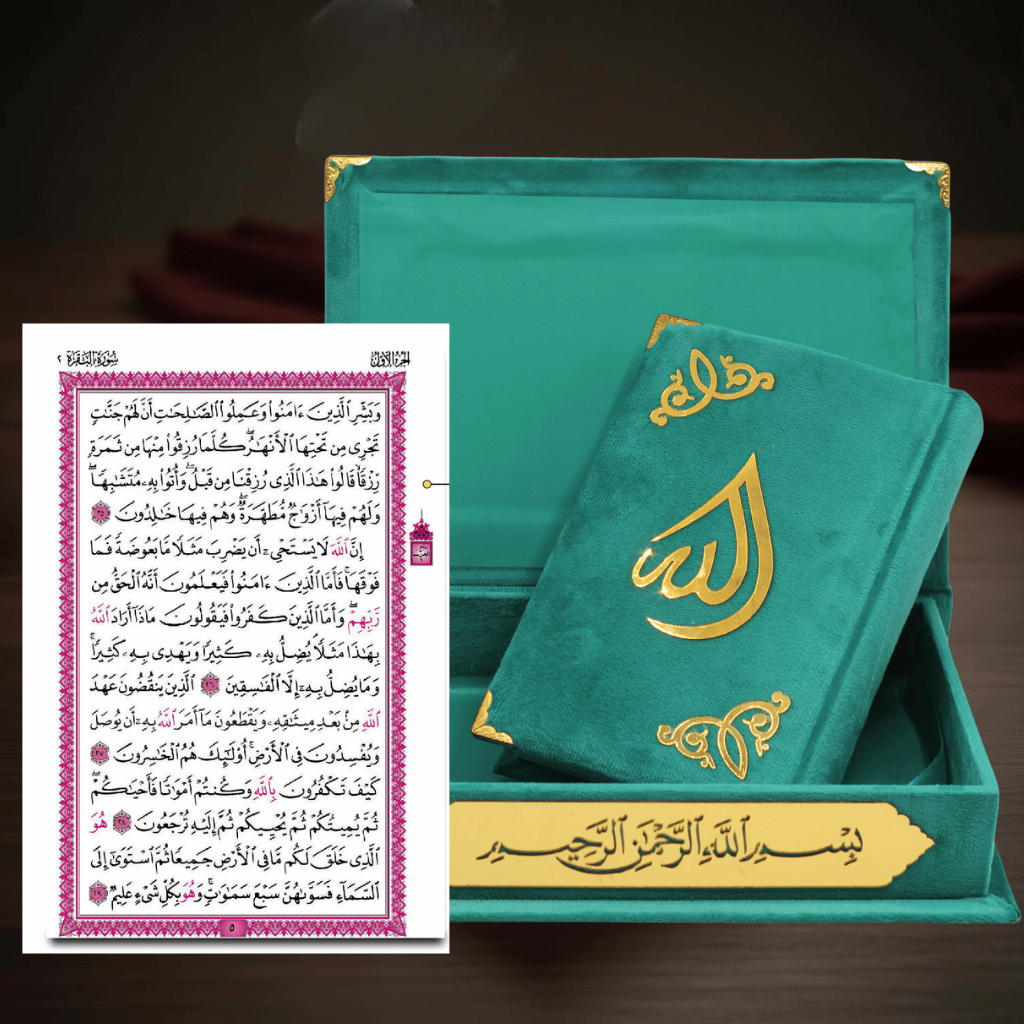 سُورَةُ البَقَرَة ٢
الجُزءُ الأَوَّلُ
وَبَشِّرِ الَّذِينَ ءَامَنُوا۟ وَعَمِلُوا۟ الصَّـٰلِحَـٰتِ أَنَّ لَهُمْ جَنَّـٰتٍ
تَجْرِى مِن تَحْتِهَا الْأَنْهَـٰرُ ۖ كُلَّمَا رُزِقُوا۟ مِنْهَا مِن ثَمَرَةٍ
رِّزْقًا ۙ قَالُوا۟ هَـٰذَا الَّذِى رُزِقْنَا مِن قَبْلُ ۖ وَأُتُوا۟ بِهِۦ مُتَشَـٰبِهًا ۖ
وَلَهُمْ فِيهَآ أَزْوَٰجٌ مُّطَهَّرَةٌ ۖ وَهُمْ فِيهَا خَـٰلِدُونَ ٢٥
إِنَّ اللَّهَ لَا يَسْتَحْىِۦٓ أَن يَضْرِبَ مَثَلًا مَّا بَعُوضَةً فَمَا
فَوْقَهَا ۚ فَأَمَّا الَّذِينَ ءَامَنُوا۟ فَيَعْلَمُونَ أَنَّهُ الْحَقُّ مِن
رَّبِّهِمْ ۖ وَأَمَّا الَّذِينَ كَفَرُوا۟ فَيَقُولُونَ مَاذَآ أَرَادَ اللَّهُ
بِهَـٰذَا مَثَلًا ۘ يُضِلُّ بِهِۦ كَثِيرًا وَيَهْدِى بِهِۦ كَثِيرًا ۚ
وَمَا يُضِلُّ بِهِۦٓ إِلَّا الْفَـٰسِقِينَ ٢٦ الَّذِينَ يَنقُضُونَ عَهْدَ
اللَّهِ مِنۢ بَعْدِ مِيثَـٰقِهِۦ وَيَقْطَعُونَ مَآ أَمَرَ اللَّهُ بِهِۦٓ أَن يُوصَلَ
وَيُفْسِدُونَ فِى الْأَرْضِ ۚ أُو۟لَـٰٓئِكَ هُمُ الْخَـٰسِرُونَ ٢٧
كَيْفَ تَكْفُرُونَ بِاللَّهِ وَكُنتُمْ أَمْوَٰتًا فَأَحْيَـٰكُمْ ۖ
ثُمَّ يُمِيتُكُمْ ثُمَّ يُحْيِيكُمْ ثُمَّ إِلَيْهِ تُرْجَعُونَ ٢٨ هُوَ
الَّذِى خَلَقَ لَكُم مَّا فِى الْأَرْضِ جَمِيعًا ثُمَّ اسْتَوَىٰٓ إِلَى
السَّمَآءِ فَسَوَّىٰهُنَّ سَبْعَ سَمَـٰوَٰتٍ ۚ وَهُوَ بِكُلِّ شَىْءٍ عَلِيمٌ ٢٩
٥
الله
بِسْمِ اللَّهِ الرَّحْمَـٰنِ الرَّحِيمِ